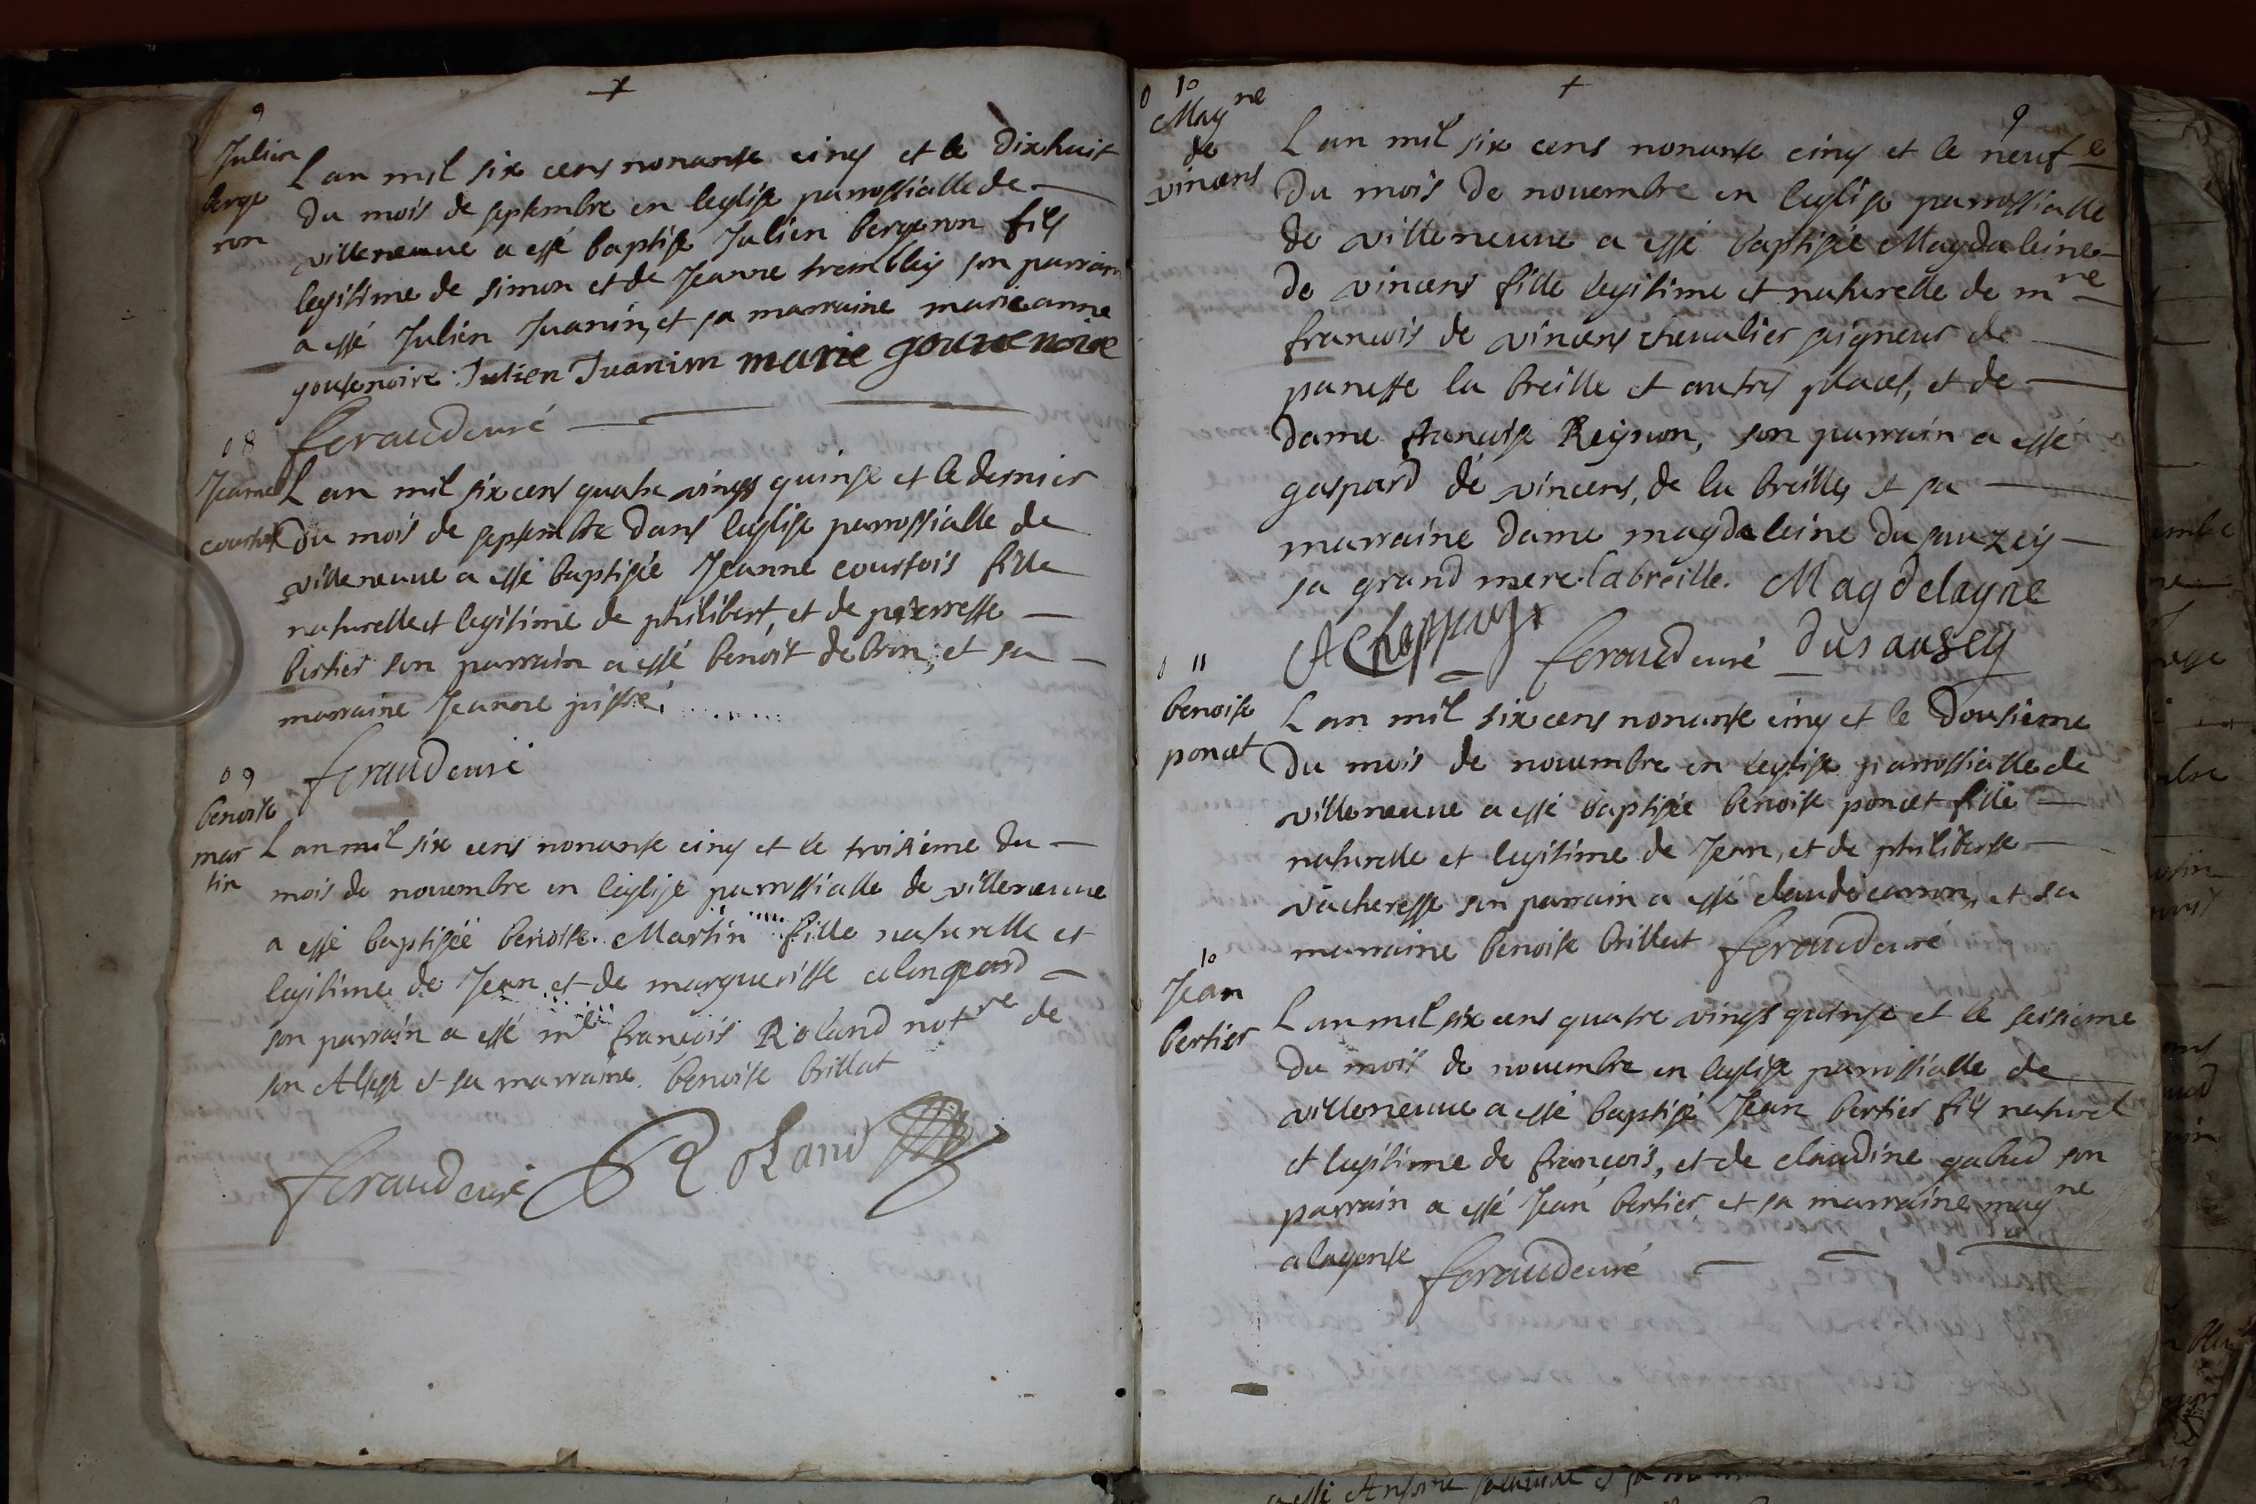 9
Julien
berge
ron
L an mil six cens nonante cinq et le dixhuit
du mois de septembre en leglise parrossialle de
villeneuve a esté baptisé Julien bergeron fils
legitime de simon et de Jeanne trembley son parrain
a esté Julien Juanin, et sa marraine marieanne
goutenoire Julien Juanim marie goutenoire
feraud curé
08
Jeanne
courtois
L an mil six cens quatre vings quinse et le dernier
du mois de septembre dans leglise parrossialle de
villeneuve a esté baptisée Jeanne courtois fille
naturelle et legitime de philibert, et de pierrette
bertier son parrain a esté benoist debron, et sa
marraine Jeanne
feraud curé
09
benoite
mar
tin
L an mil six cens nonante cinq et le troisieme du
mois de novembre en leglise parrossialle de villeneuve
a esté baptisée benoite Martin fille naturelle et
legitime de Jean et de margueritte
son parrain a esté françois Roland notre de
son Altesse et sa marraine benoite brillat
feraud curé Roland
+
010
9
Magne
de
vincens
L an mil six cens nonante cinq et le neufe
du mois de novembre en leglise parrossialle
de villeneuve a esté baptisée Magdaleine
de vincens fille legitime et naturelle de mre
françois de vincens chevalier seigneur de
panette la breille et autres places, et de
dame françoise Reynon, son parrain a esté
gaspard de vincens, de la breille, et sa
marraine dame magdaleine du sauzey
sa grand mere. labreille. Magdelayne
feraud curé dusausey
0 11
benoite
poncet
L an mil six cens nonante cinq et le dousieme
du mois de novembre en leglise parrossialle de
villeneuve a esté baptisée benoite poncet fille
naturelle et legitime de Jean, et de philiberte
vacheresse son parrain a esté claude carron, et sa
marraine benoite brillat feraud curé
10
Jean
bertier
L an mil six cens quatre vings quinse et le seisieme
du mois de novembre en leglise parrossialle de
villeneuve a esté baptisé Jean bertier fils naturel
et legitime de françois, et de claudine gabud son
parrain a esté Jean bertier et sa marraine magne
alagonte feraud curé